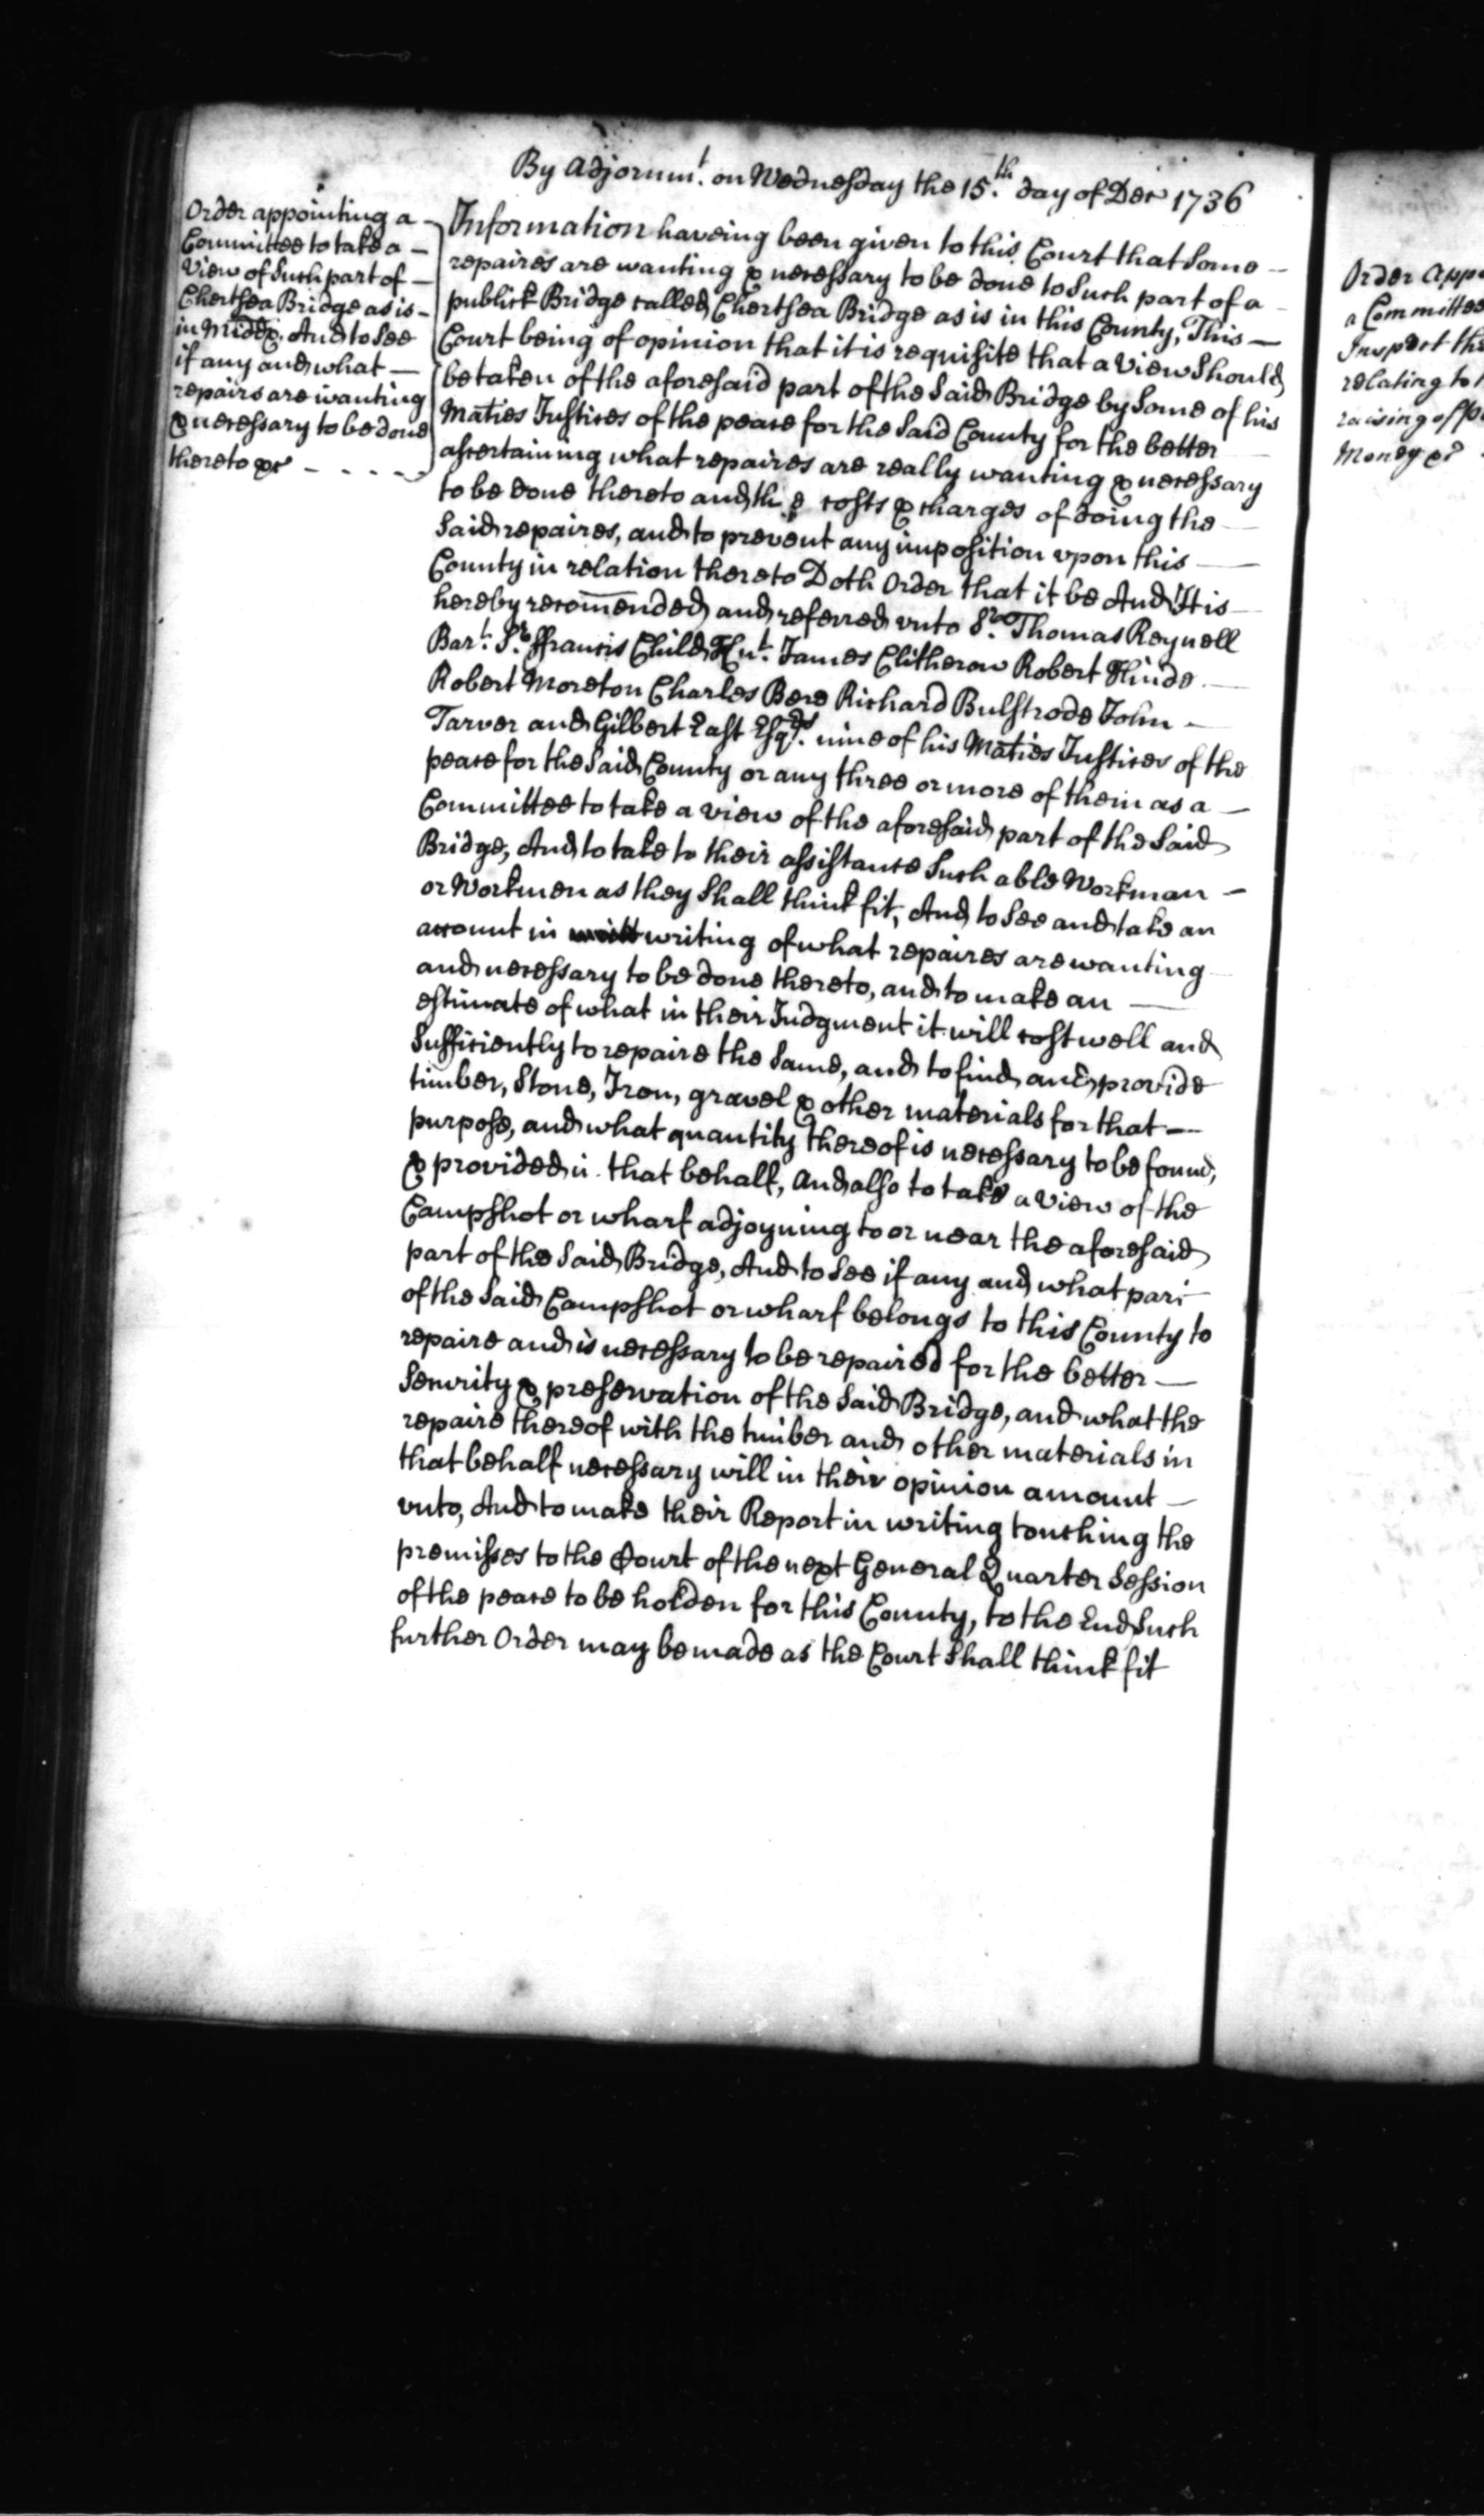 By Adjornmt. on Wednesday the 15.th day of Decr 1736
Order appointing a
Committee to take a
View of Such part of
Chertsea Bridge as is
in Middx, And to See
if any and what
repairs are wanting
& necessary to be done
thereto &c
Information haveing been given to this Court that Some
repaires are wanting & necessary to be done to Such part of a
publick Bridge called Chertsea Bridge as is in this County, This
Court being of opinion that it is requisite that a View Should
be taken of the aforesaid part of the Said Bridge by Some of his
Maties Justices of the peace for the Said County for the better
ascertaining what repaires are really wanting & necessary
to be done thereto and the costs & charges of doing the
Said repaires, and to prevent any imposition vpon this
County in relation thereto Doth Order that it be And It is
hereby recomended and referred vnto Sr. Thomas Reynell
Bart. Sr. ffrancis Child Knt. James Clitherow Robert Hinde
Robert Moreton Charles Bere Richard Bulstrode John
Tarver and Gilbert East Esqrs. nine of his Maties Justices of the
peace for the Said County or any three or more of them as a
Committee to take a view of the aforesaid part of the Said
Bridge, And to take to their assistance Such able Workman
or Workmen as they Shall think fit, And to See and take an
account in writing of what repaires are wanting
and necessary to be done thereto, and to make an
estimate of what in their Judgment it will cost well and
Sufficiently to repaire the Same, and to find and provide
timber, Stone, Iron, gravel & other materials for that
purpose, and what quantity thereof is necessary to be found,
& provided in that behalf, And also to take a View of the
Campshot or wharf adjoyning to or near the aforesaid
part of the Said Bridge, And to See if any and what part
of the Said Campshot or wharf belongs to this County to
repaire and is necessary to be repaired for the better
Security & preservation of the Said Bridge, and what the
repaire thereof with the timber and other materials in
that behalf necessary will in their opinion amount
vnto, And to make their Report in writing touching the
premisses to the Court of the next General Quarter Session
of the peace to be holden for this County, to the End Such
further Order may be made as the Court Shall think fit
Order App
a Committee
Inspect the
relating to
raising of
Money &c